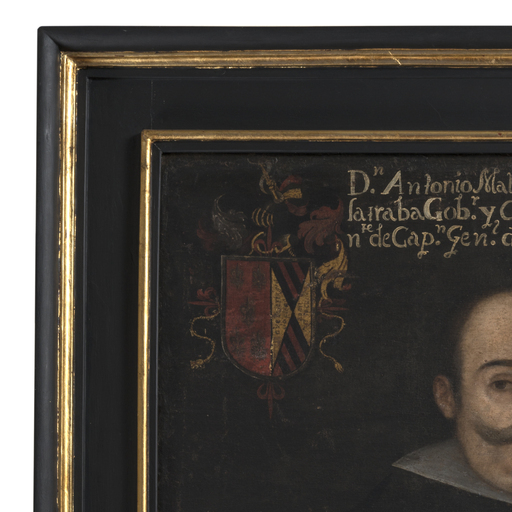 D.ⁿ Antonio Mal
sairaba Gob.ʳ y C
nᵗᵉ de Cap.ⁿ Gen.ˡ d